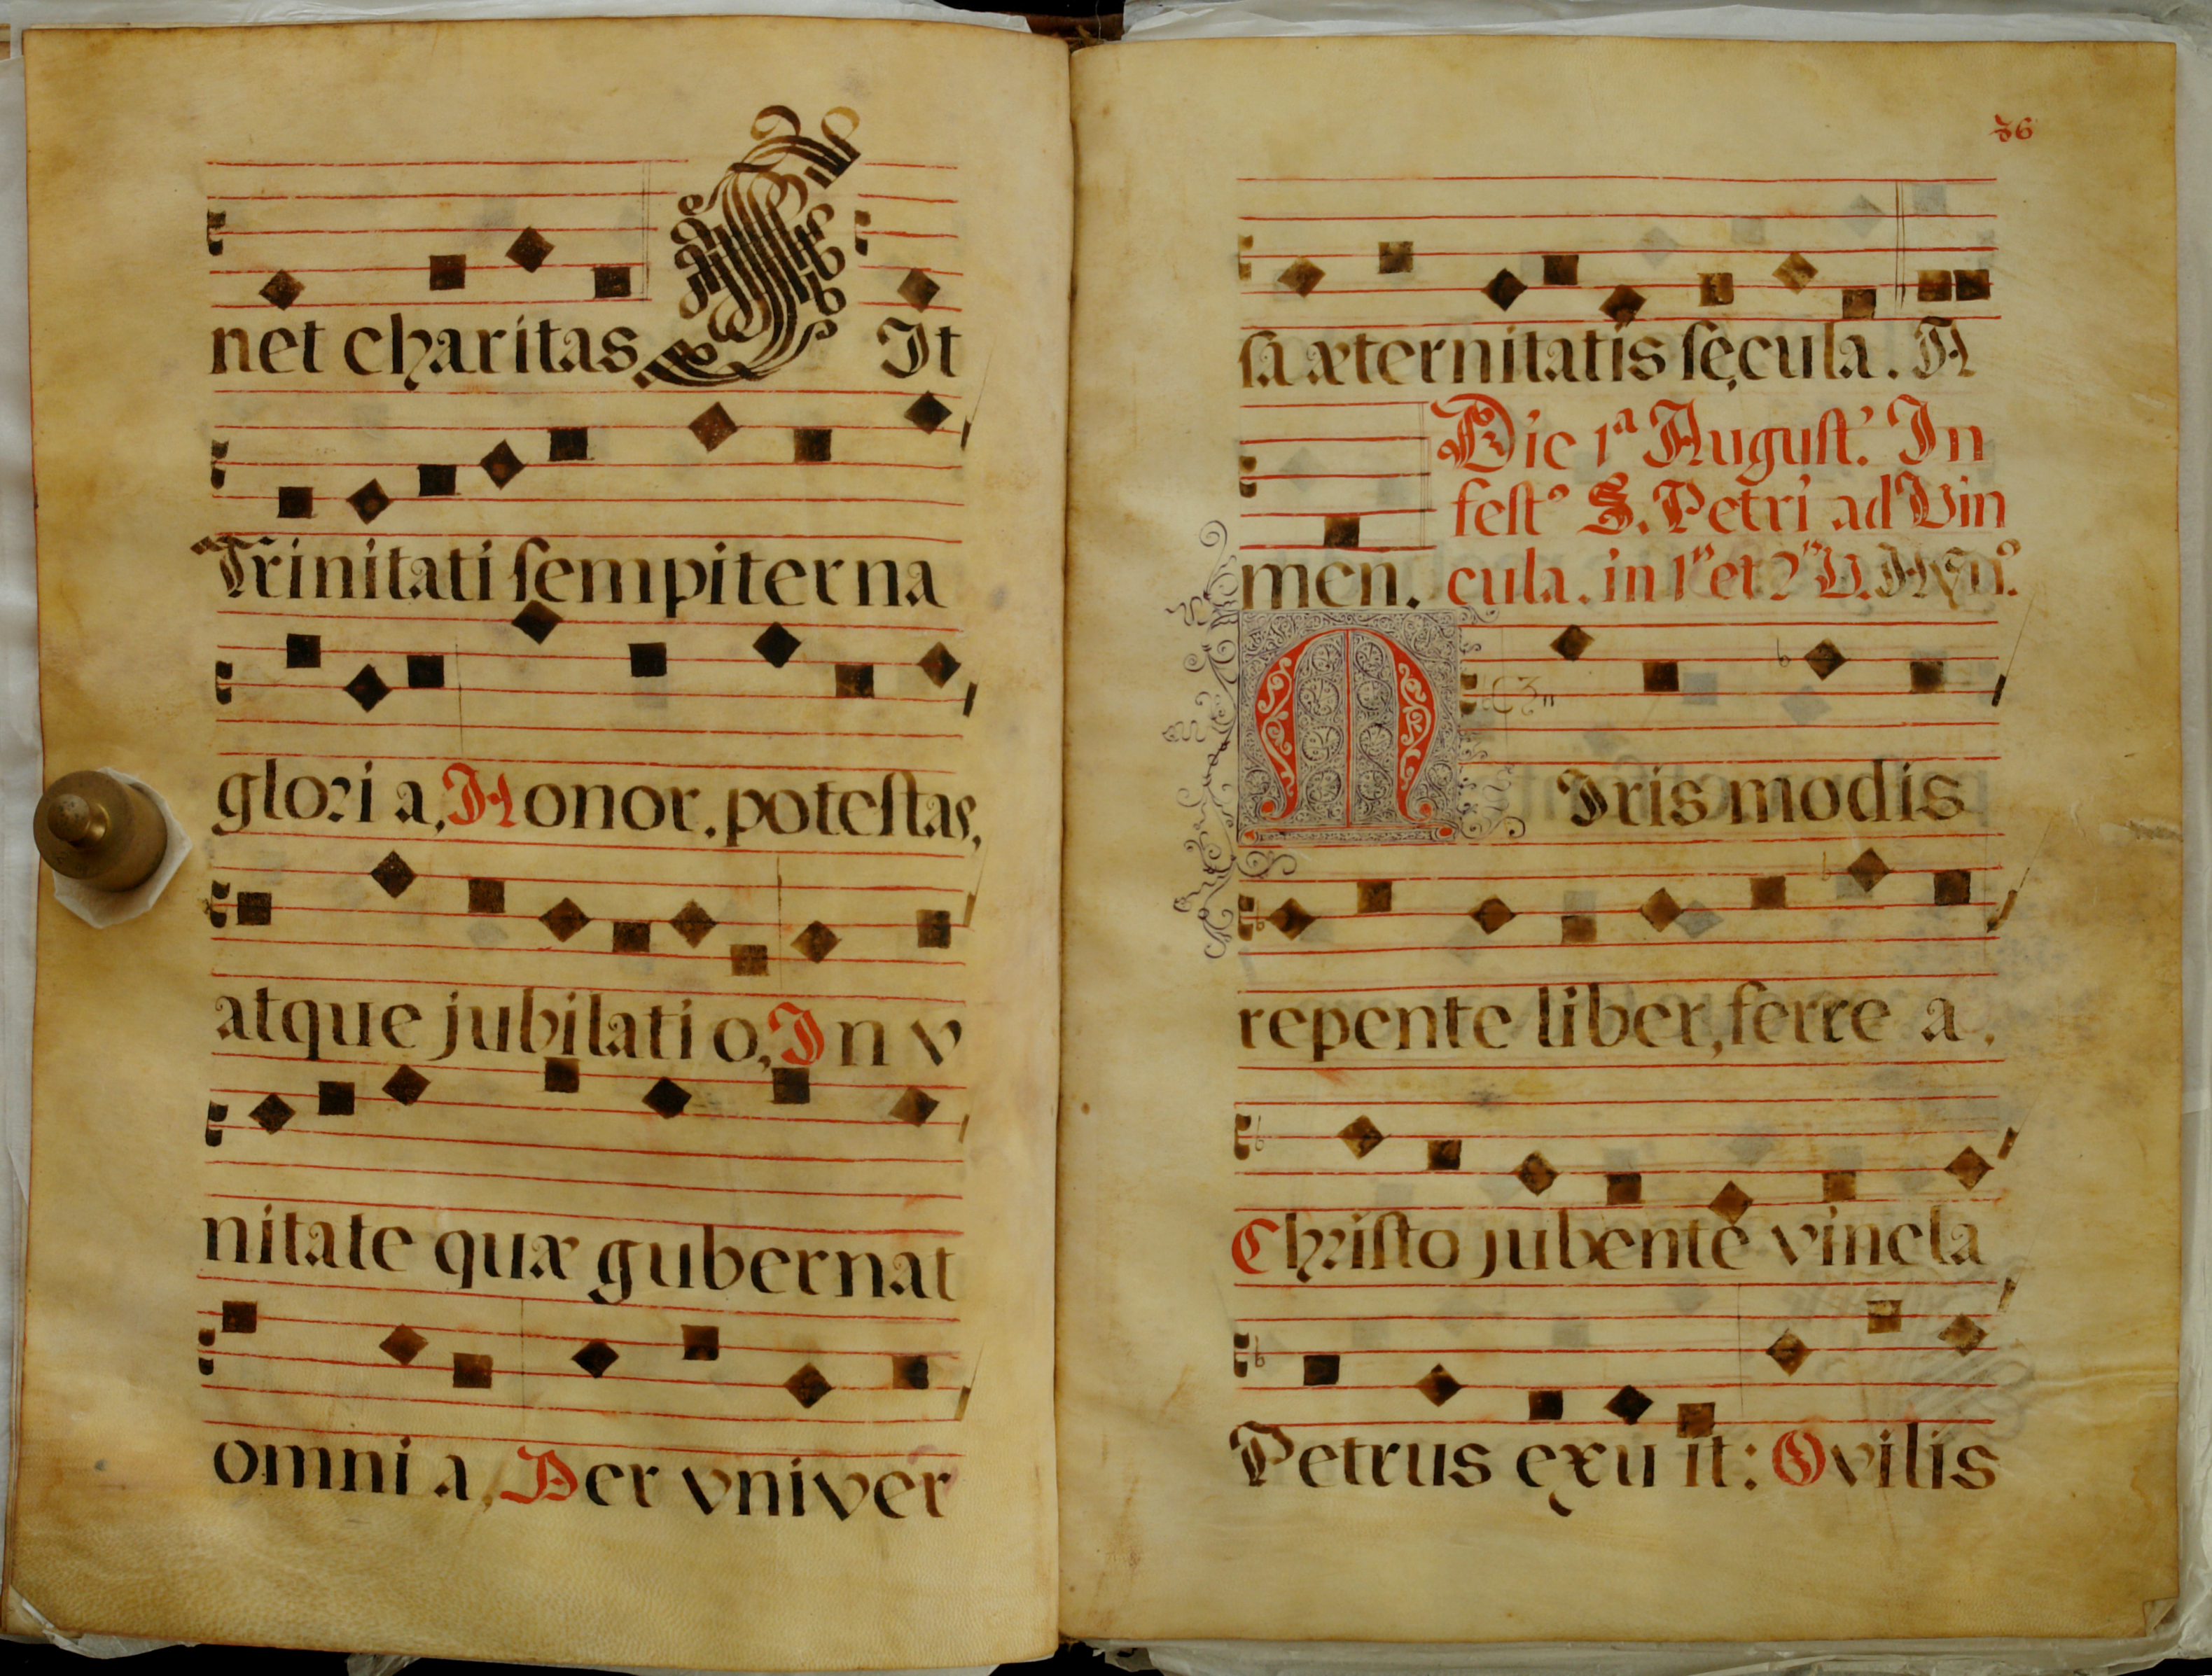 net charitas It
Trinitati sempiterna
glori a, Honor, potestas,
atque jubilati o, In v
nitate quæ gubernat
omni a, Per vniver
36
sa æternitatis sęcula. A
men. Die 1ª August.' In
fest.º S. Petri ad Vin
cula. in 1.ˢ et 2.ˢ V.
Miris modis
repente liber, ferre a,
Christo jubente vincla
Petrus exu it: Ovilis